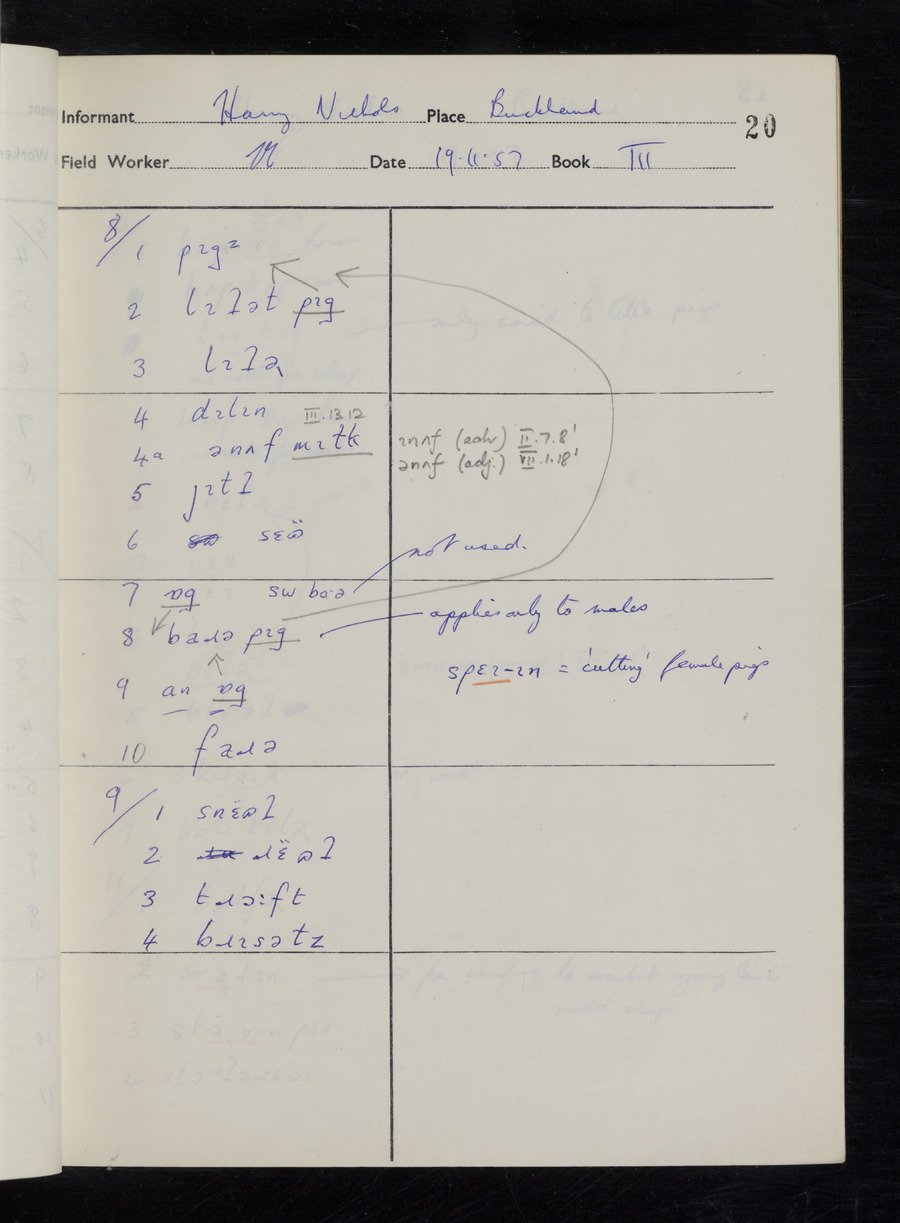 Informant Harry Nichols Place Buckland
20
Field Worker Date 19·11·57 Book III
8/ 1 pɪgz
2 lɪɫət pɪg
3 lɪɫə
4 dɪlɪn III.13.12
4a ənʌf mɪɫk ɪnʌf (adv) II.7.8'
ənʌf (adj.) VII.1.18'
5 jɪtɫ
6 sɛö
7 ɒg sw bɔ:ə not used.
8 baɹə pɪg applies only to males
spɛɪ-ɪn = 'cutting' female pigs
9 an ɒg
10 faɹə
9/ 1 snɛ̈ɒɫ
2 ɹɛ̈ɒɫ
3 tɹɔ:ft
4 bɹɪsətz